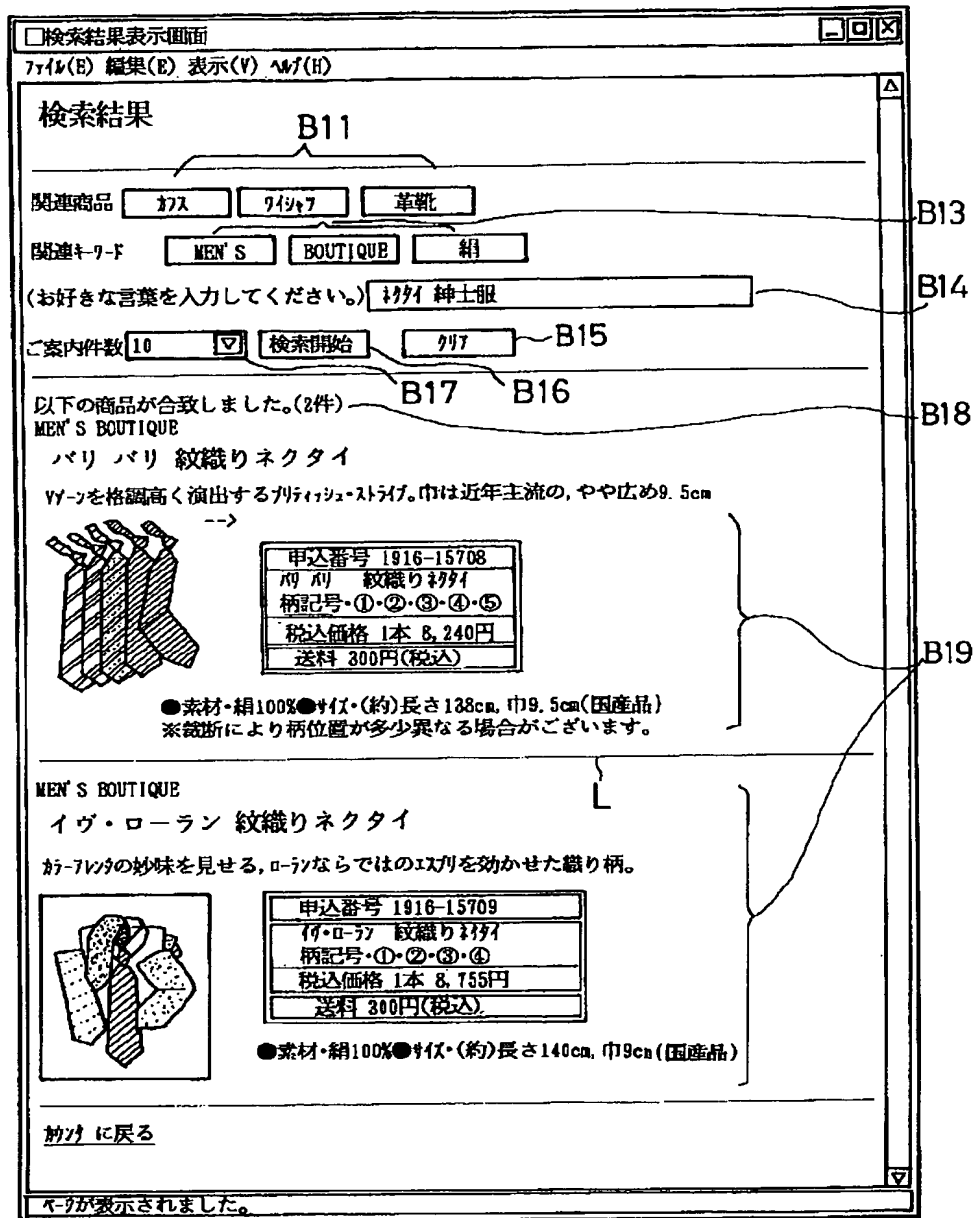 □検索結果表示画面
ファイル(E) 編集(E) 表示(V) ヘルプ(H)
検索結果
B11
関連商品 カフス ワイシャツ 革靴
B13
関連キーワード MEN'S BOUTIQUE 絹
(お好きな言葉を入力してください。) ネクタイ 紳士服
B14
ご案内件数 10 検索開始 クリア
B15
B17 B16
以下の商品が合致しました。(2件)
B18
MEN'S BOUTIQUE
バリ バリ 紋織りネクタイ
Vゾーンを格調高く演出するブリティッシュ・ストライプ。巾は近年主流の,やや広め9.5cm
-->
申込番号 1916-15708
バリ バリ 紋織りネクタイ
柄記号・①・②・③・④・⑤
税込価格 1本 8,240円
送料 300円(税込)
B19
●素材・絹100%●サイズ・(約)長さ138cm,巾9.5cm(国産品)
※裁断により柄位置が多少異なる場合がございます。
L
MEN'S BOUTIQUE
イヴ・ローラン 紋織りネクタイ
カラーブレンダの妙味を見せる,ローランならではのエスプリを効かせた織り柄。
申込番号 1916-15709
イヴ・ローラン 紋織りネイタイ
柄記号・①・②・③・④
税込価格 1本 8,755円
送料 300円(税込)
●素材・絹100%●サイズ・(約)長さ140cm,巾9cm(国産品)
カウンタ に戻る
ページが表示されました。